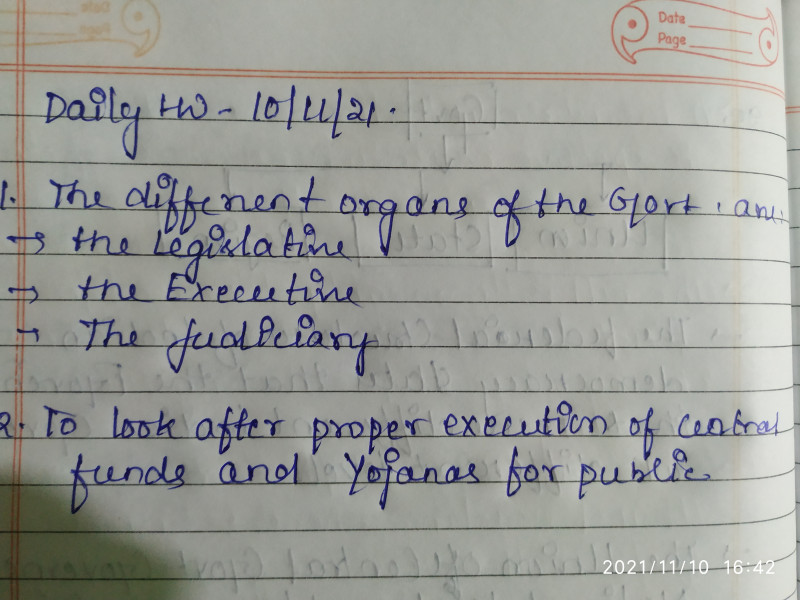 Date
Page
Daily HW - 10/11/21.
1. The different organs of the Govt. are:
→ the Legislative
→ the Executive
→ The Judiciary
2. To look after proper execution of central
funds and Yojanas for public.
2021/11/10 16:42